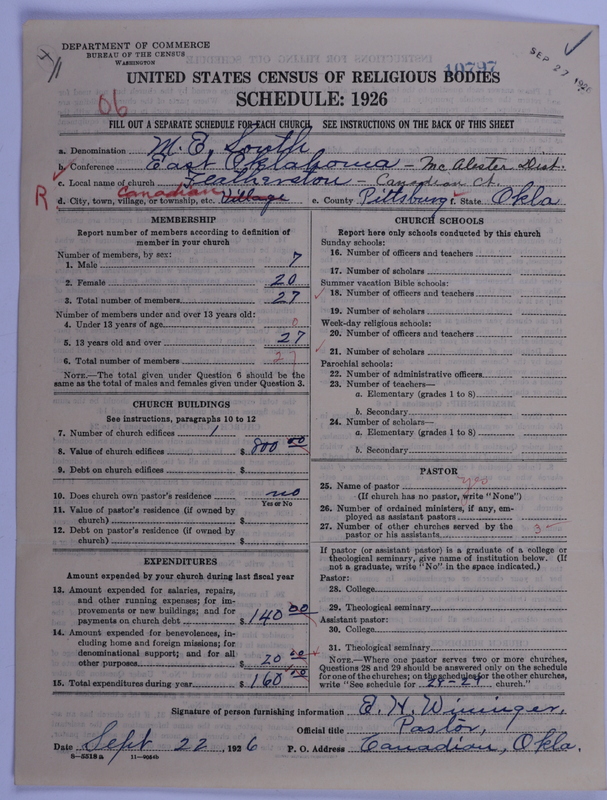 DEPARTMENT OF COMMERCE
BUREAU OF THE CENSUS
WASHINGTON
10797
SEP 27 1926
UNITED STATES CENSUS OF RELIGIOUS BODIES
SCHEDULE: 1926
06
FILL OUT A SEPARATE SCHEDULE FOR EACH CHURCH. SEE INSTRUCTIONS ON THE BACK OF THIS SHEET
a. Denomination M. E. South
b. Conference East Oklahoma - Mc Alester Dist.
c. Local name of church Featherston - Canadian Ct.
R
d. City, town, village, or township, etc. Canadian Village e. County Pittsburg f. State Okla
MEMBERSHIP
Report number of members according to definition of member in your church
Number of members, by sex:
1. Male 7
2. Female 20
3. Total number of members 27
Number of members under and over 13 years old:
4. Under 13 years of age 0
5. 13 years old and over 27
6. Total number of members 27
NOTE.—The total given under Question 6 should be the same as the total of males and females given under Question 3.
CHURCH BUILDINGS
See instructions, paragraphs 10 to 12
7. Number of church edifices 1
8. Value of church edifices $ 800 00
9. Debt on church edifices $
10. Does church own pastor's residence no
Yes or No
11. Value of pastor's residence (if owned by church) $
12. Debt on pastor's residence (if owned by church) $
EXPENDITURES
Amount expended by your church during last fiscal year
13. Amount expended for salaries, repairs, and other running expenses; for improvements or new buildings; and for payments on church debt $ 140 00
14. Amount expended for benevolences, including home and foreign missions; for denominational support; and for all other purposes $ 20 00
15. Total expenditures during year $ 160 00
CHURCH SCHOOLS
Report here only schools conducted by this church
Sunday schools:
16. Number of officers and teachers
17. Number of scholars
Summer vacation Bible schools:
18. Number of officers and teachers
19. Number of scholars
Week-day religious schools:
20. Number of officers and teachers
21. Number of scholars
Parochial schools:
22. Number of administrative officers
23. Number of teachers—
a. Elementary (grades 1 to 8)
b. Secondary
24. Number of scholars—
a. Elementary (grades 1 to 8)
b. Secondary
PASTOR
25. Name of pastor yes
(If church has no pastor, write "None")
26. Number of ordained ministers, if any, employed as assistant pastors
27. Number of other churches served by the pastor or his assistants 3
If pastor (or assistant pastor) is a graduate of a college or theological seminary, give name of institution below. (If not a graduate, write "No" in the space indicated.)
Pastor:
28. College
29. Theological seminary
Assistant pastor:
30. College
31. Theological seminary
NOTE.—Where one pastor serves two or more churches, Questions 28 and 29 should be answered only on the schedule for one of the churches; on the schedules for the other churches, write "See schedule for 28-29 church."
Signature of person furnishing information E. H. Wininger,
Official title Pastor,
Date Sept 22, 1926 P. O. Address Canadian, Okla.
8-5518a 11-9044b